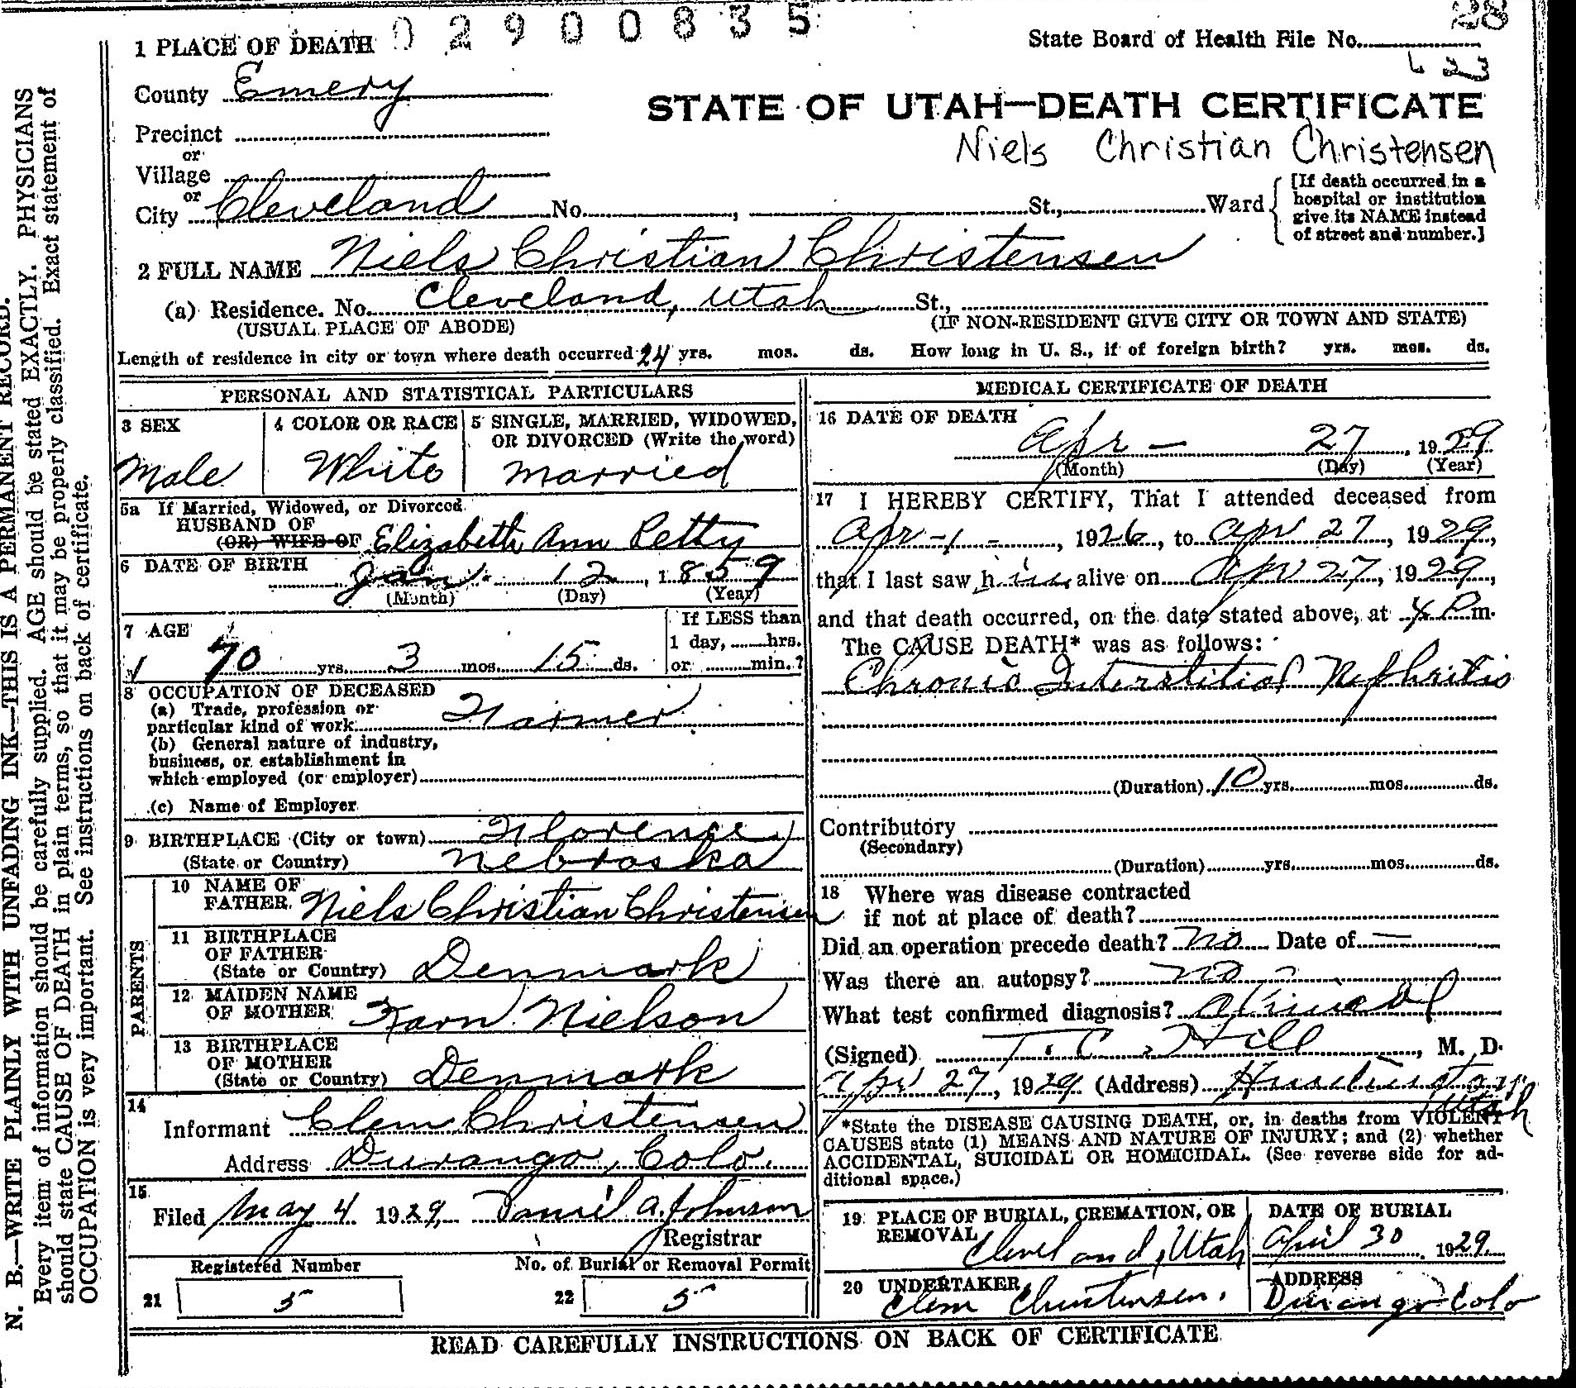 02900835
28
1 PLACE OF DEATH
State Board of Health File No.
County Emery
STATE OF UTAH—DEATH CERTIFICATE
Precinct
or
Niels Christian Christensen
Village
or
City Cleveland No. , St., Ward
[If death occurred in a
hospital or institution
give its NAME instead
of street and number.]
2 FULL NAME Niels Christian Christensen
(a) Residence. No. Cleveland, Utah St.,
(USUAL PLACE OF ABODE) (IF NON-RESIDENT GIVE CITY OR TOWN AND STATE)
Length of residence in city or town where death occurred 24 yrs. mos. ds. How long in U. S., if of foreign birth? yrs. mos. ds.
PERSONAL AND STATISTICAL PARTICULARS
3 SEX
Male
4 COLOR OR RACE
White
5 SINGLE, MARRIED, WIDOWED,
OR DIVORCED (Write the word)
Married
5a If Married, Widowed, or Divorced
HUSBAND OF
(OR) WIFE OF Elizabeth Ann Petty
6 DATE OF BIRTH Jan. 12, 1859
(Month) (Day) (Year)
7 AGE
70 yrs. 3 mos. 15 ds.
If LESS than
1 day, hrs.
or min.?
8 OCCUPATION OF DECEASED
(a) Trade, profession or
particular kind of work Farmer
(b) General nature of industry,
business, or establishment in
which employed (or employer)
(c) Name of Employer
9 BIRTHPLACE (City or town) Florence
(State or Country) Nebraska
PARENTS
10 NAME OF
FATHER Niels Christian Christensen
11 BIRTHPLACE
OF FATHER
(State or Country) Denmark
12 MAIDEN NAME
OF MOTHER Karn Nielson
13 BIRTHPLACE
OF MOTHER
(State or Country) Denmark
14
Informant Clem Christensen
Address Durango, Colo.
15
Filed May 4 1929, Daniel A. Johnson
Registrar
Registered Number
21 5
No. of Burial or Removal Permit
22 5
MEDICAL CERTIFICATE OF DEATH
16 DATE OF DEATH
Apr — 27, 1929
(Month) (Day) (Year)
17 I HEREBY CERTIFY, That I attended deceased from
Apr - 1 -, 1926, to Apr 27, 1929,
that I last saw him alive on Apr 27, 1929,
and that death occurred, on the date stated above, at 4 Pm.
The CAUSE DEATH* was as follows:
Chronic Interstitial Nephritis
(Duration) 10 yrs. mos. ds.
Contributory
(Secondary)
(Duration) yrs. mos. ds.
18 Where was disease contracted
if not at place of death?
Did an operation precede death? no Date of —
Was there an autopsy? no
What test confirmed diagnosis? clinical
(Signed) T. C. Hill, M. D.
Apr 27, 1929 (Address) Huntington
Utah
*State the DISEASE CAUSING DEATH, or, in deaths from VIOLENT
CAUSES state (1) MEANS AND NATURE OF INJURY; and (2) whether
ACCIDENTAL, SUICIDAL OR HOMICIDAL. (See reverse side for ad-
ditional space.)
19 PLACE OF BURIAL, CREMATION, OR
REMOVAL
Cleveland, Utah
DATE OF BURIAL
April 30, 1929.
20 UNDERTAKER
Clem Christensen.
ADDRESS
Durango Colo
READ CAREFULLY INSTRUCTIONS ON BACK OF CERTIFICATE
N. B.—WRITE PLAINLY WITH UNFADING INK—THIS IS A PERMANENT RECORD.
Every item of information should be carefully supplied. AGE should be stated EXACTLY. PHYSICIANS
should state CAUSE OF DEATH in plain terms, so that it may be properly classified. Exact statement of
OCCUPATION is very important. See instructions on back of certificate.